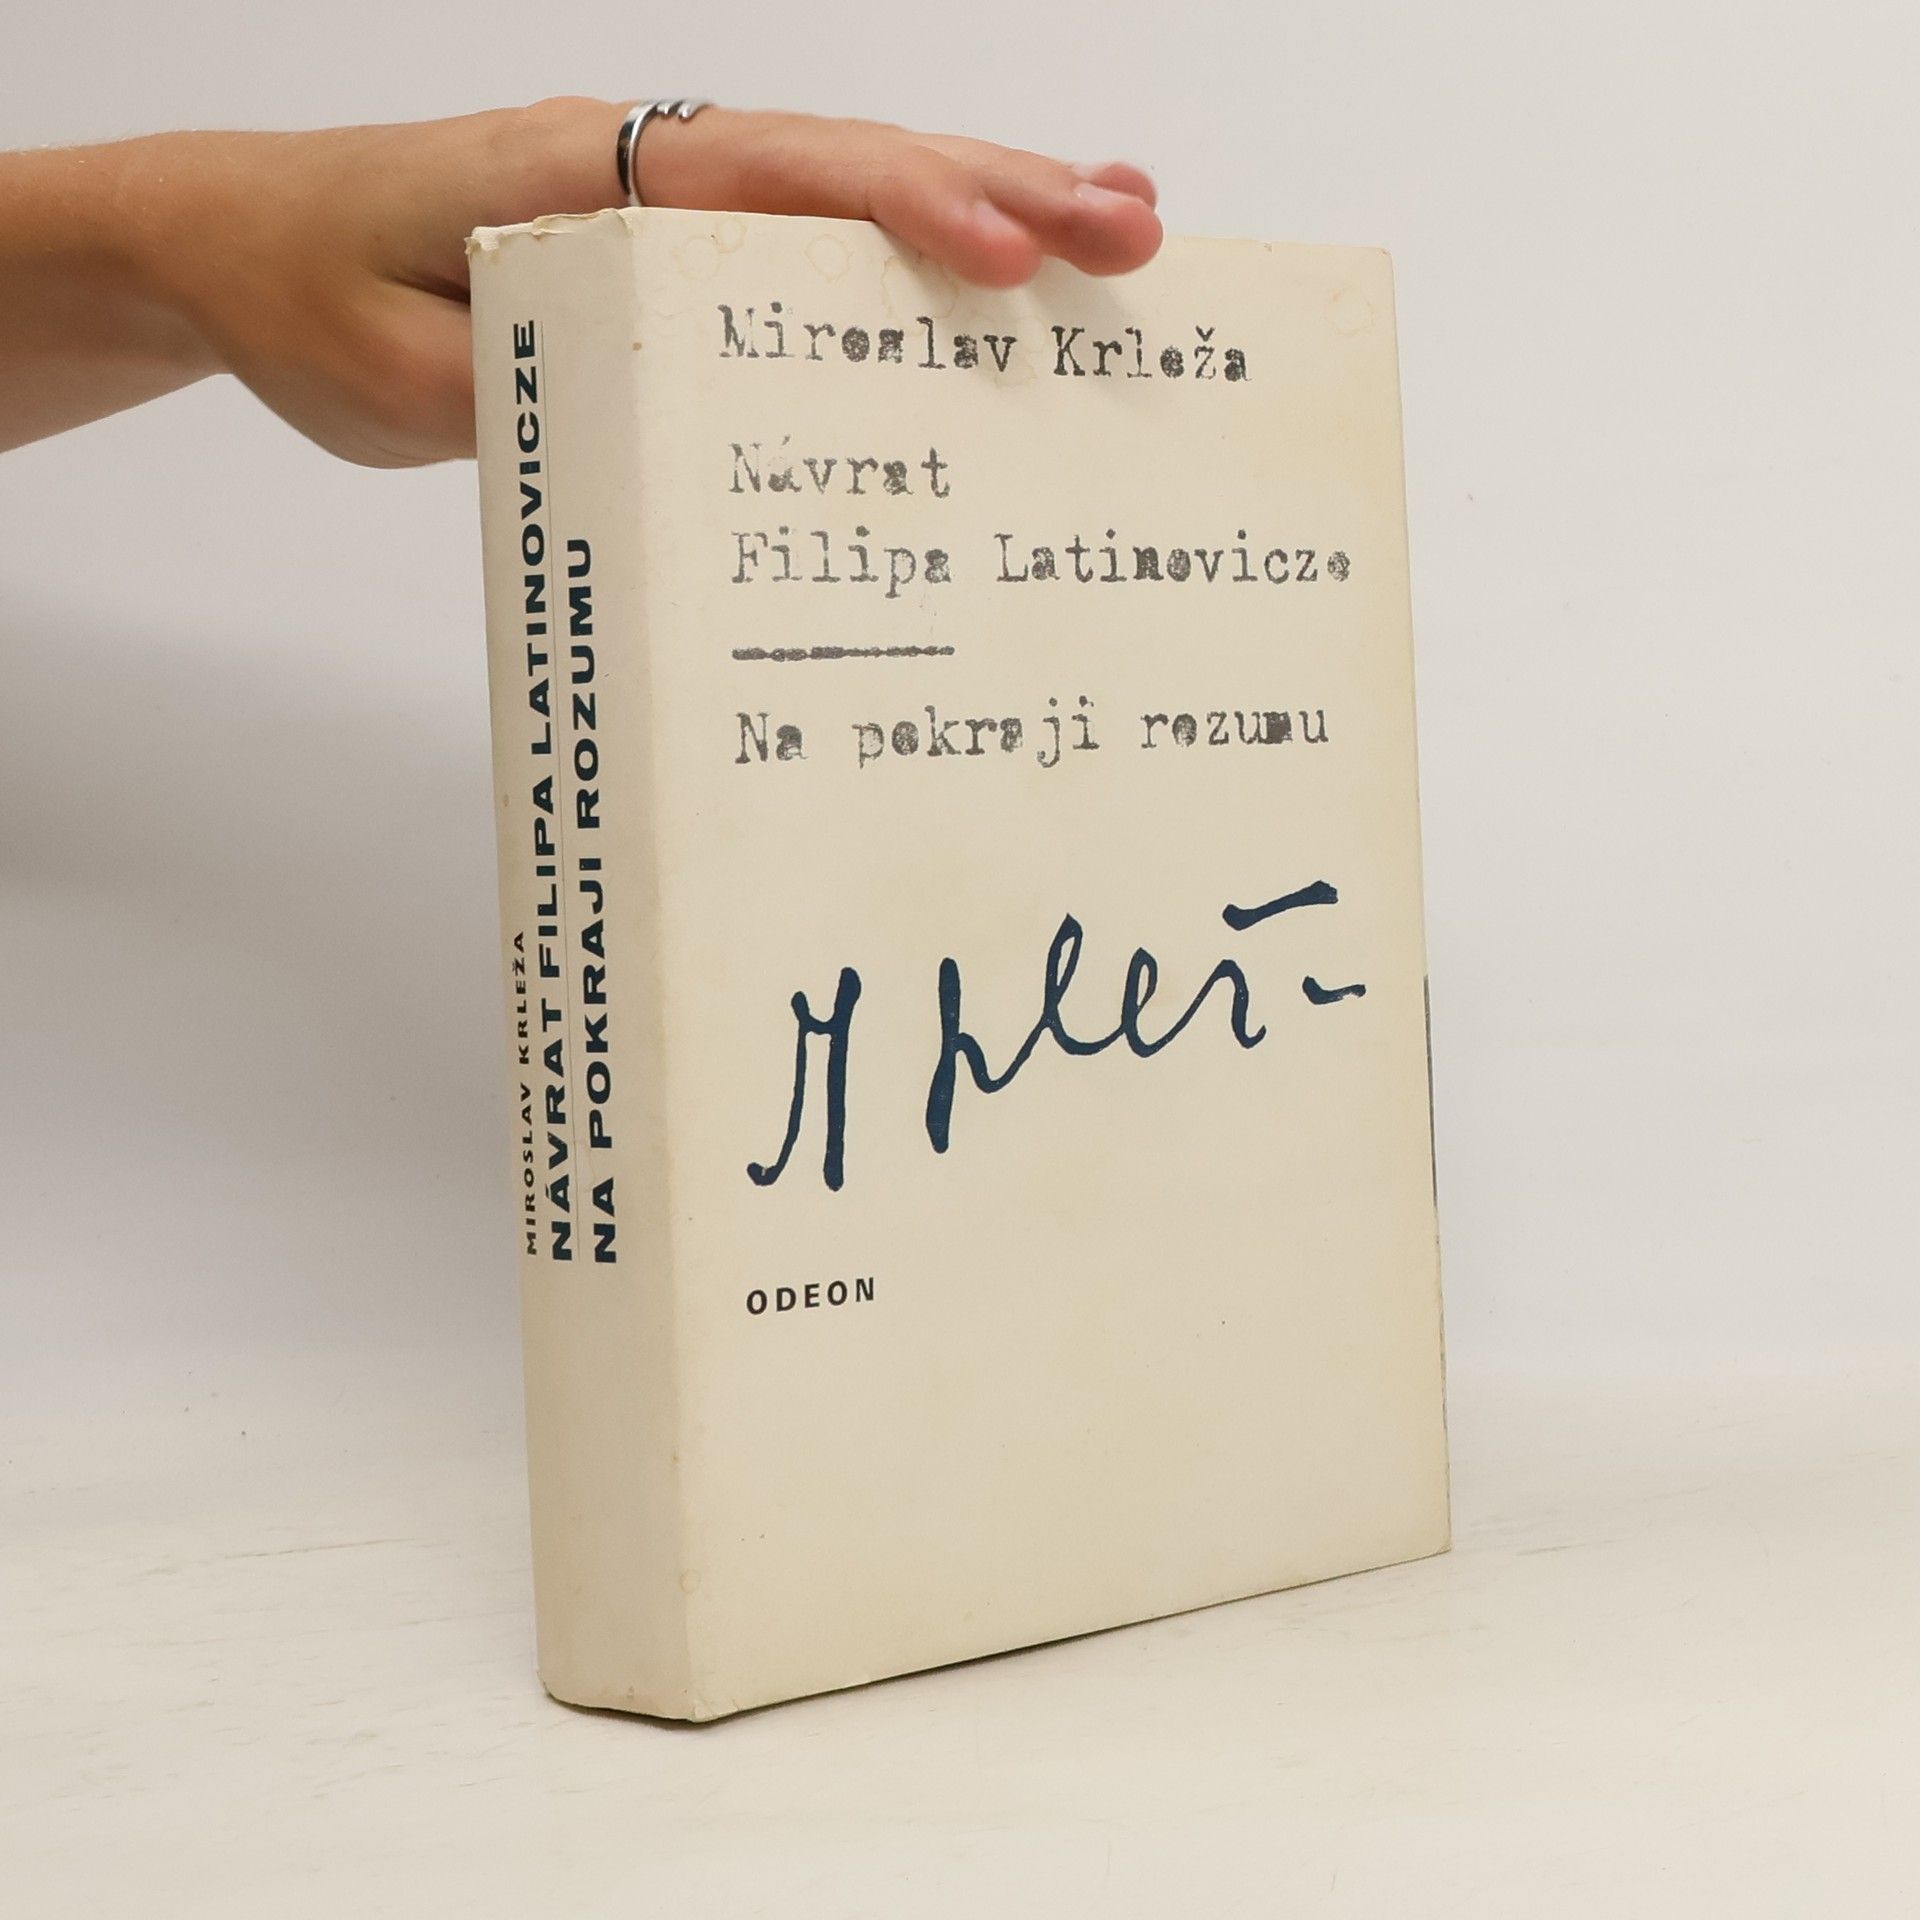 MIROSLAV KRLEŽA
NÁVRAT FILIPA LATINOVICZE
NA POKRAJI ROZUMU
Miroslav Krleža
Návrat
Filipa Latinovicze
Na pokraji rozumu
ODEON